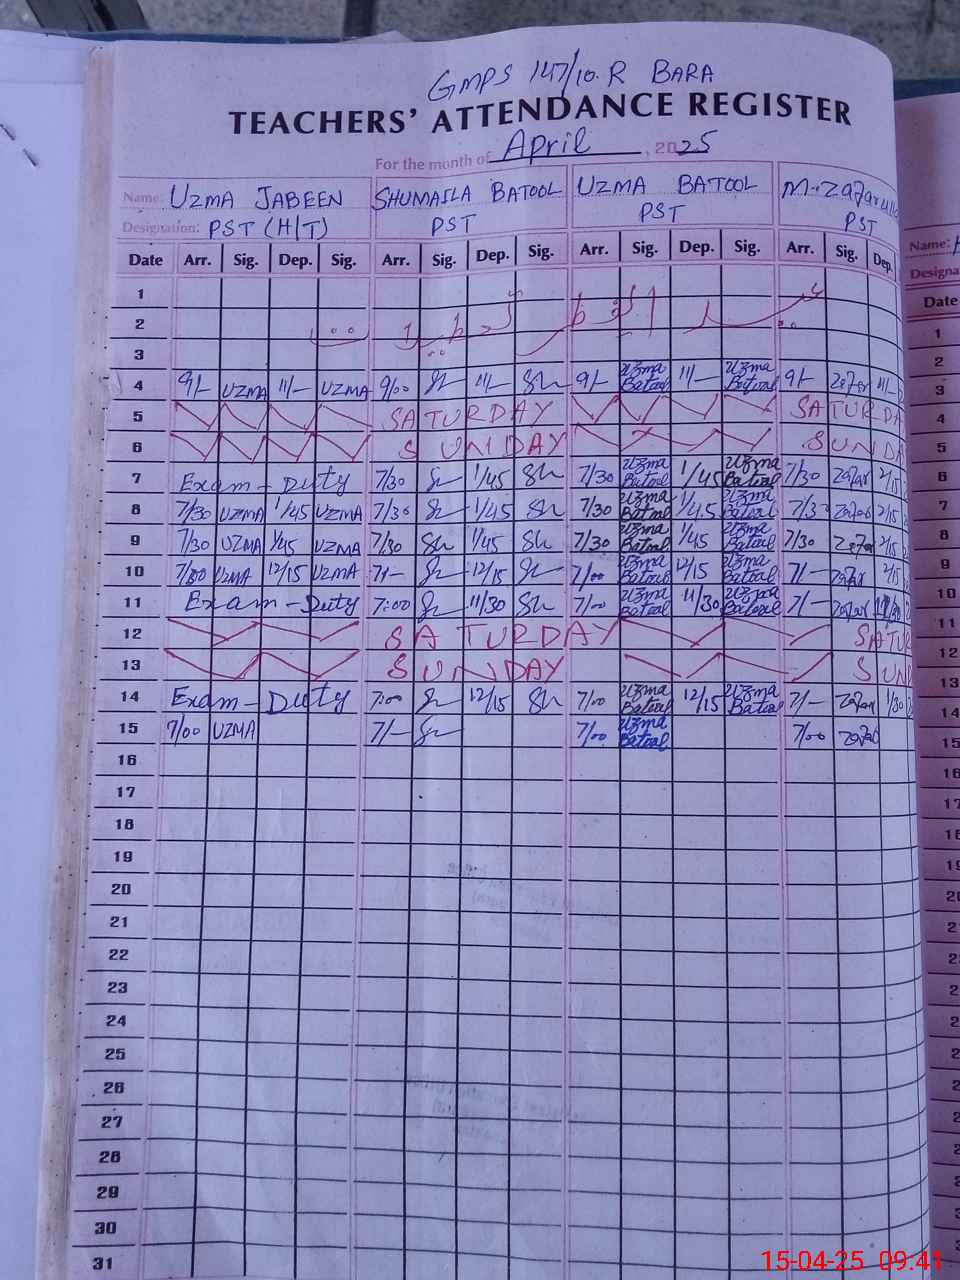 GMPS 147/10.R BARA
TEACHERS' ATTENDANCE REGISTER
For the month of April, 2025
Name: UZMA JABEEN SHUMAILA BATOOL UZMA BATOOL M.
Designation: PST (H/T) PST PST PST
Date Arr. Sig. Dep. Sig. Arr. Sig. Dep. Sig. Arr. Sig. Dep. Sig. Arr. Sig. Dep.
1
2
3
4 9/- UZMA 11/- UZMA 9/00 11/- 9/- Uzma Batool 11/- Uzma Batool 9/- Zafar 11/-
5 SATURDAY SATURDA
6 SUNDAY SUNDA
7 Exam - Duty 7/30 1/45 7/30 Uzma Batool 1/45 Uzma Batool 7/30 Zafar 2/15
8 7/30 UZMA 1/45 UZMA 7/30 1/45 7/30 Uzma Batool 1/45 Uzma Batool 7/3 Zafar 2/15
9 7/30 UZMA 1/45 UZMA 7/30 1/45 7/30 Uzma Batool 1/45 Uzma Batool 7/30 Zafar 2/15
10 7/30 UZMA 12/15 UZMA 7/- 12/15 7/00 Uzma Batool 12/15 Uzma Batool 7/- Zafar 2/15
11 Exam - Duty 7:00 11/30 7/00 Uzma Batool 11/30 Uzma Batool 7/- Zafar
12 SATURDAY SATU
13 SUNDAY SUN
14 Exam - Duty 7:00 12/15 7/00 Uzma Batool 12/15 Uzma Batool 7/- Zafar 1/30
15 7/00 UZMA 7/- 7/00 Uzma Batool 7/00 Zafar
16
17
18
19
20
21
22
23
24
25
26
27
28
29
30
31
Name:
Designa
Date
1
2
3
4
5
6
7
8
9
10
11
12
13
14
15
16
15-04-25 09:41